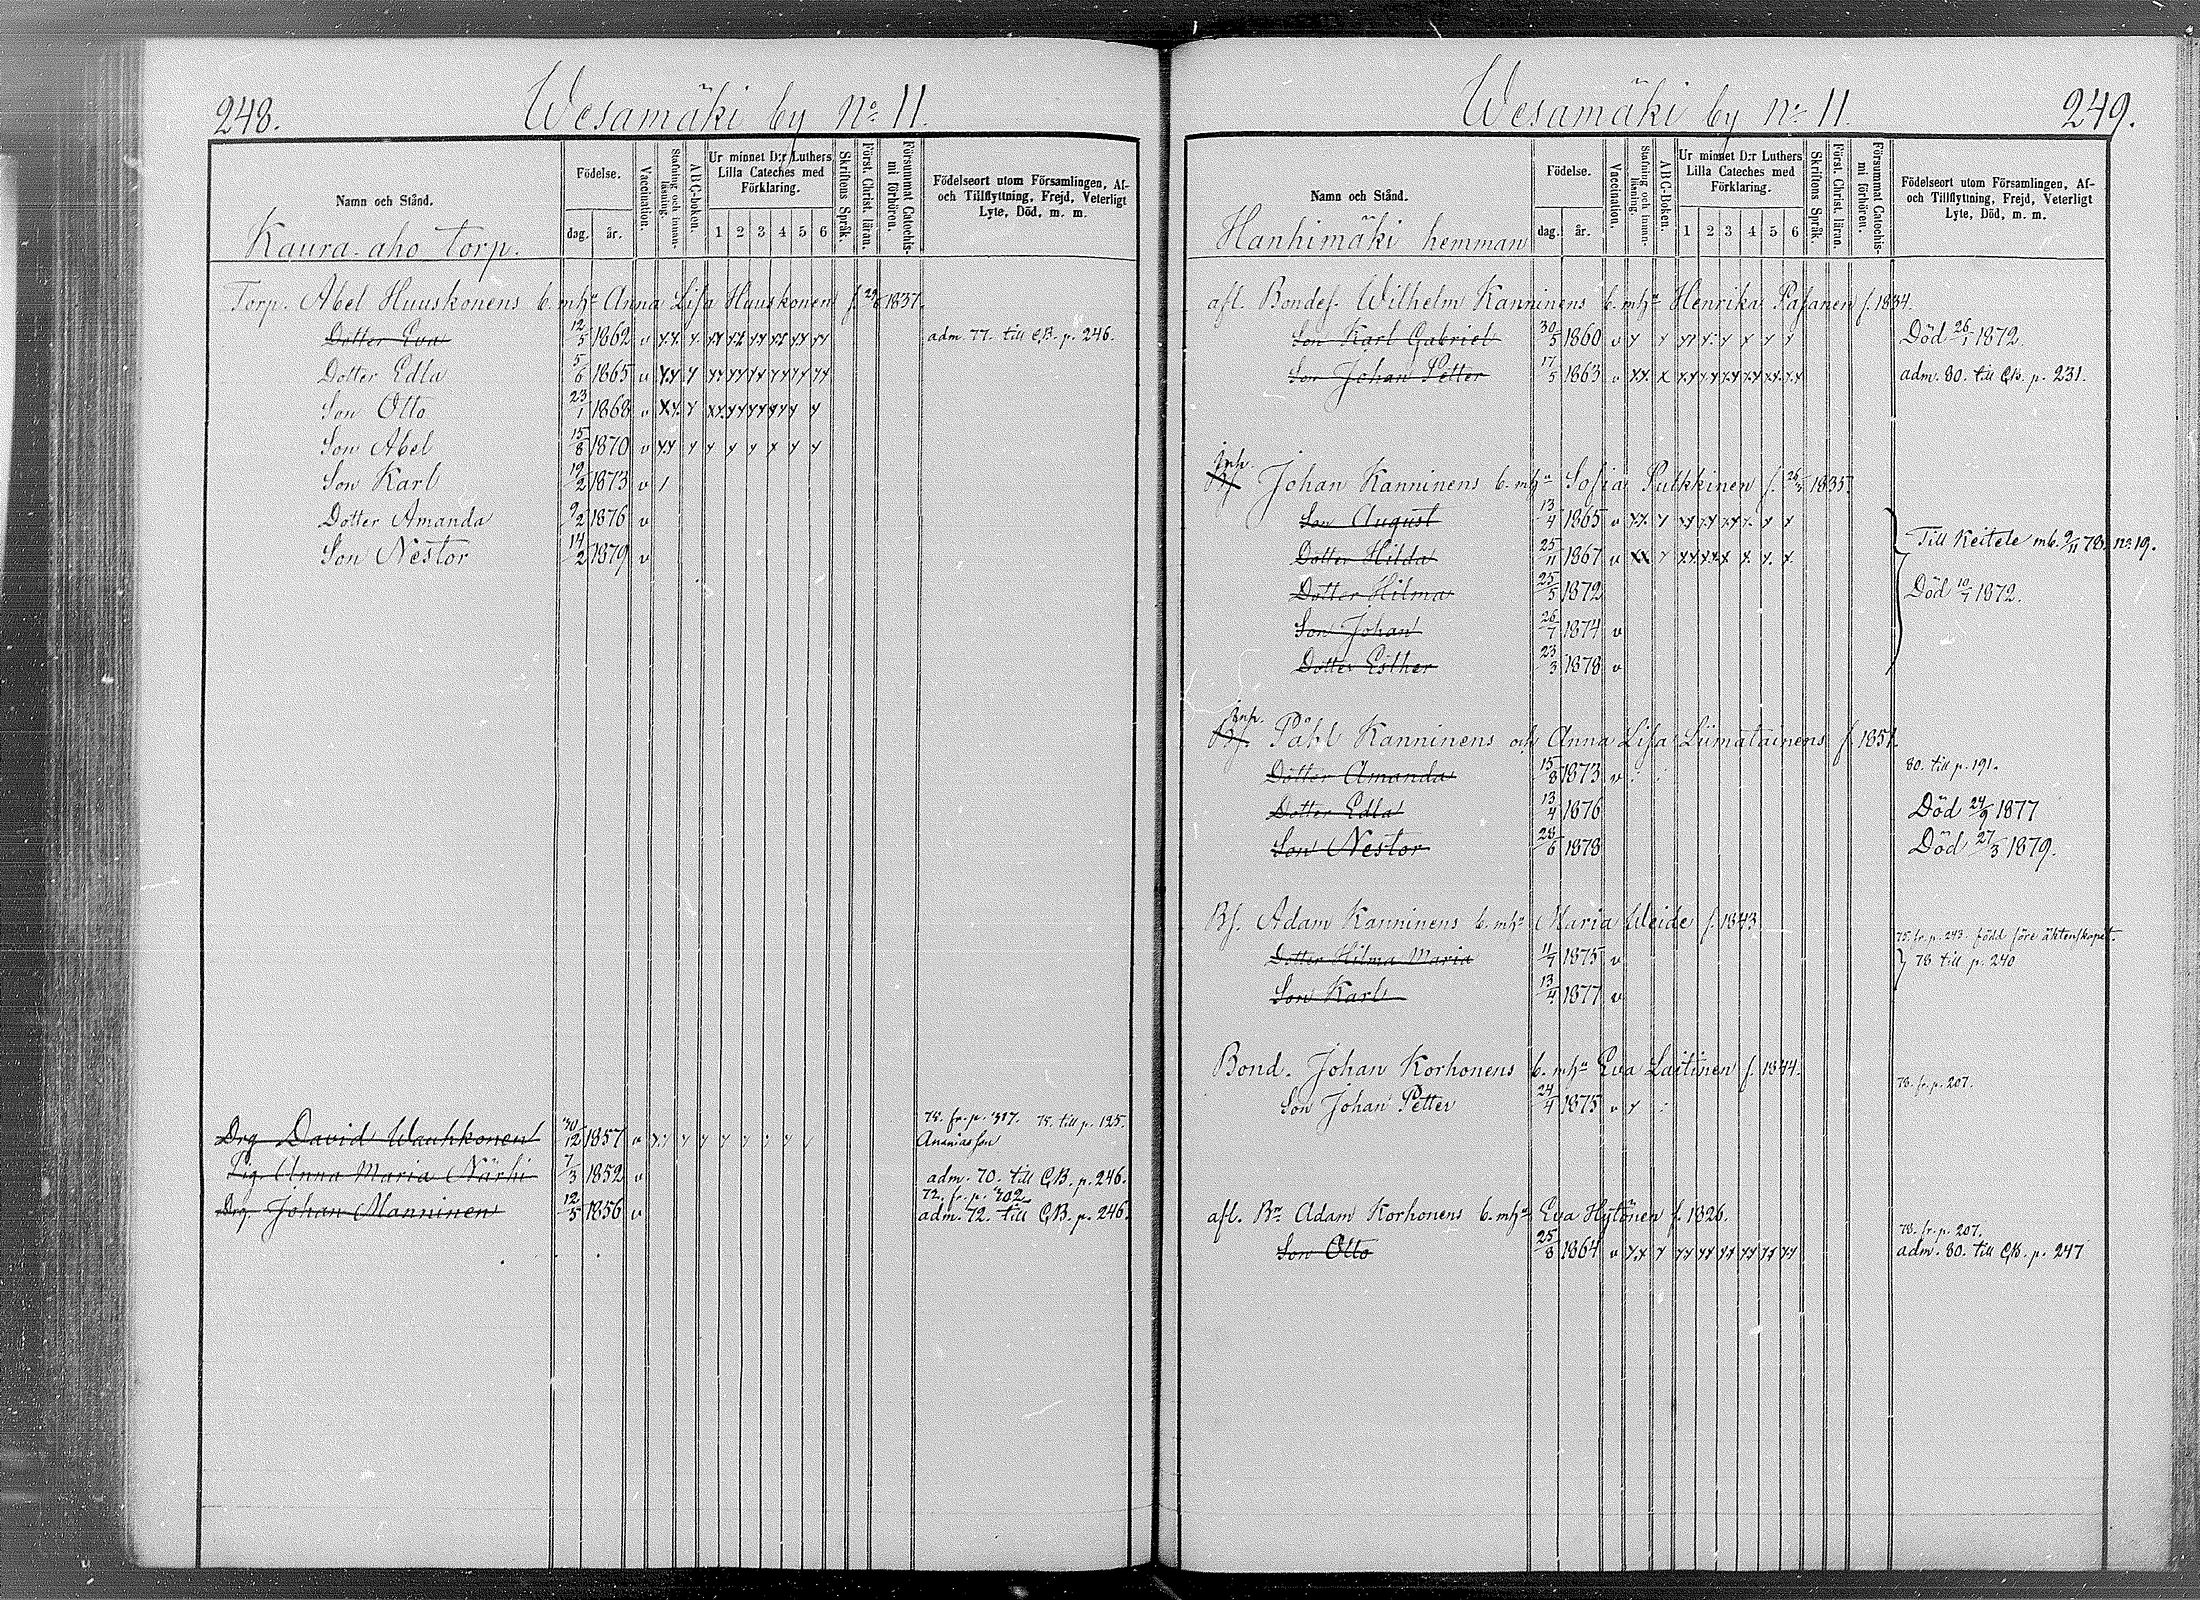 248.
Wesamäki by No 11.
Namn och Stånd.
Födelse.
dag.
år.
Vaccination.
Stafning och innan-läsning.
A B C-boken.
Ur minnet D:r Luthers
Lilla Cateches med
Förklaring.
1 2 3 4 5 6
Skriftens Språk.
Först. Christ. läran.
Försummat Catechis-
mi förhören.
Födelseort utom Församlingen, Af-
och Tillflyttning, Frejd, Veterligt
Lyte, Död, m. m.
Kaura-aho torp.
Torp. Abel Huuskonens b. mhn Anna Lisa Huuskonen f. 29/6 1837.
Dotter Eva 12/5 1862 v adm. 77. till C.B. p. 246.
Dotter Edla 5/6 1865 v
Son Otto 23/1 1868 v
Son Abel 15/8 1870 v
Son Karl 19/2 1873 v
Dotter Amanda 9/2 1876 v
Son Nestor 14/2 1879 v
Drg David Wauhkonen 30/12 1857 v 72. fr. p. 317. 75. till p. 125.
Ananiasson
Pig. Anna Maria Närhi 7/3 1852 v adm. 70. till C.B. p. 246.
72. fr. p. 302
Drg. Johan Manninen 12/5 1856 v adm. 72. till C.B. p. 246.
Wesamäki by No 11.
249.
Namn och Stånd.
Födelse.
dag.
år.
Vaccination.
Stafning och innan-läsning.
A B C-Boken.
Ur minnet D:r Luthers
Lilla Cateches med
Förklaring.
1 2 3 4 5 6
Skriftens Språk.
Först. Christ. läran.
Försummat Catechis-
mi förhören.
Födelseort utom Församlingen, Af-
och Tillflyttning, Frejd, Veterligt
Lyte, Död, m. m.
Hanhimäki hemman
afl. Bondes. Wilhelm Kanninens b. mhn Henrika Pasanen f. 1834.
Son Karl Gabriel 30/5 1860 v Död 26/1 1872.
Son Johan Petter 17/5 1863 v adm. 80. till C.B. p. 231.
inh.
Johan Kanninens b. mhn Sofia Pulkkinen f. 1835.
Son August 13/4 1865 v
Till Keitele mb. 9/11 78. no. 19.
Dotter Hilda 25/11 1867 v
Dotter Hilma 25/5 1872 Död 10/7 1872.
Son Johan 26/7 1874 v
Dotter Esther 23/3 1878 v
inh.
Bf. Påhl Kanninens och Anna Lisa Liimatainens f. 1851.
Dotter Amanda 15/8 1873 v 80. till p. 191.
Dotter Edla 13/4 1876 Död 24/9 1877
Son Nestor 28/6 1878 Död 27/3 1879.
Bf. Adam Kanninens b. mhn Maria Weide f. 1843
75. fr. p. 243. född före äktenskapet.
Dotter Hilma Maria 11/7 1875 v 78 till p. 240
Son Karl 13/4 1877 v
Bond. Johan Korhonens b. mhn Eva Laitinen f. 1844.
78. fr. p. 207.
Son Johan Petter 24/4 1875 v
afl. Bn Adam Korhonens b. mhn Eva Hytönen f. 1826.
78. fr. p. 207.
Son Otto 25/8 1864 v adm. 80. till C.B. p. 247